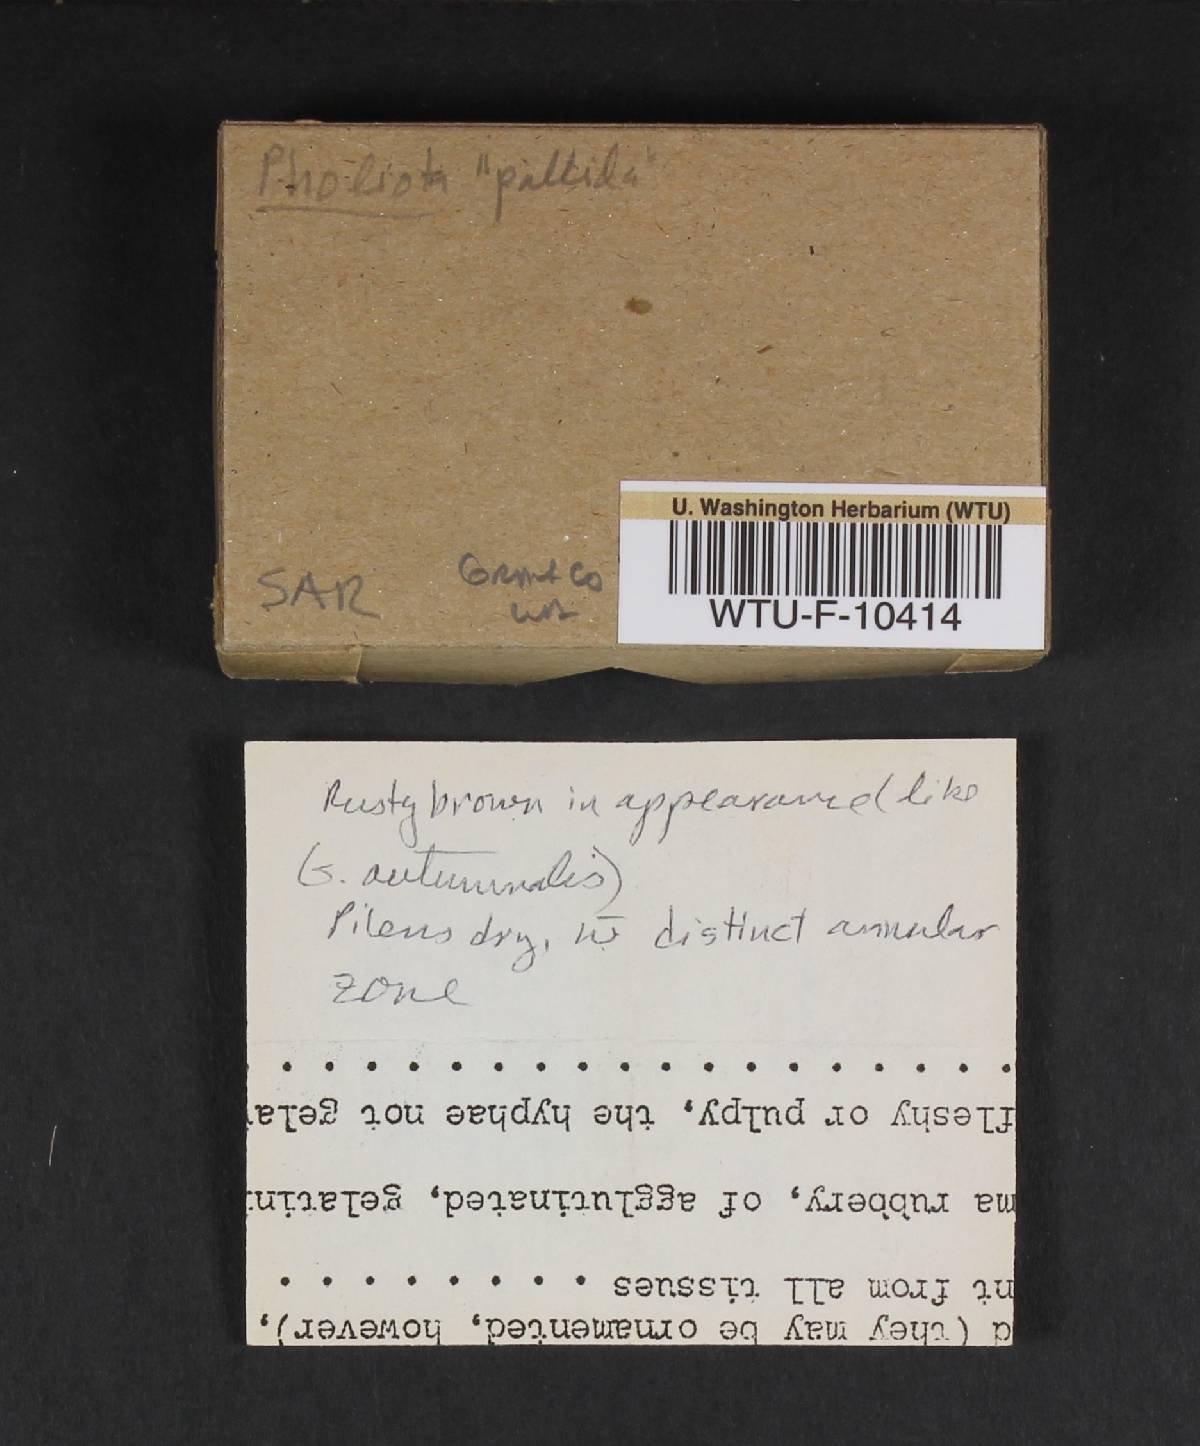 Pholiota "pallida"
SAR
Grant Co
WA
U. Washington Herbarium (WTU)
WTU-F-10414
Rusty brown in appearance (like
G. autumnalis)
Pileus dry, w̄ distinct annular
zone
d (they may be ornamented, however),
nt from all tissues . . . . . . . .
ma rubbery, of agglutinated, gelatini
fleshy or pulpy, the hyphae not gela
. . . . . . . . . . . . . . . . . .